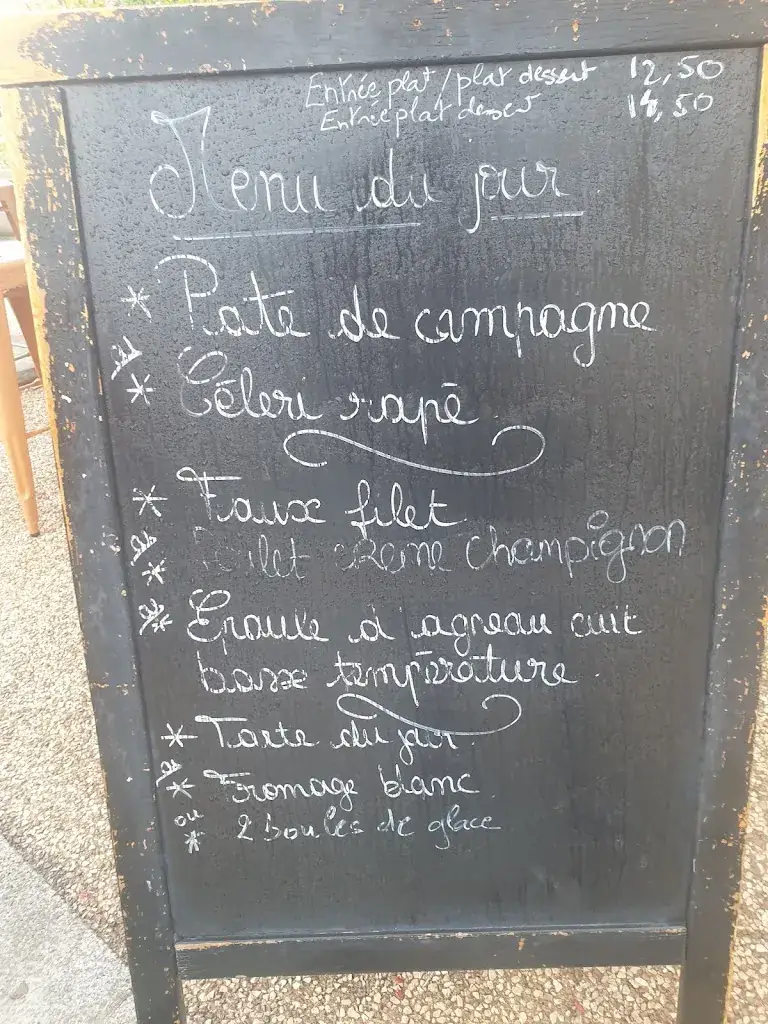 Entrée plat / plat dessert 12,50
Entrée plat dessert 14,50
Menu du jour
* Pate de campagne
* Céleri rapé
* Faux filet
* crème champignon
* Epaule d'agneau cuit
basse température
* Tarte du jour
* Fromage blanc
ou
* 2 boules de glace